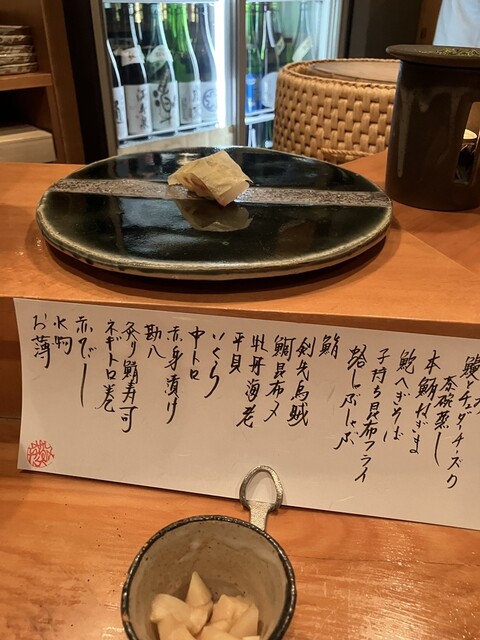 鰻とチェダーチーズ
茶碗蒸し
本鮪ねぎま
鮑へぎそば
子持ち昆布フライ
蛤しゃぶしゃぶ
鮨
剣先烏賊
鯛昆布〆
牡丹海老
平貝
いくら
中トロ
赤身漬け
勘八
炙り鯖寿司
ネギトロ巻
赤だし
水物
お薄